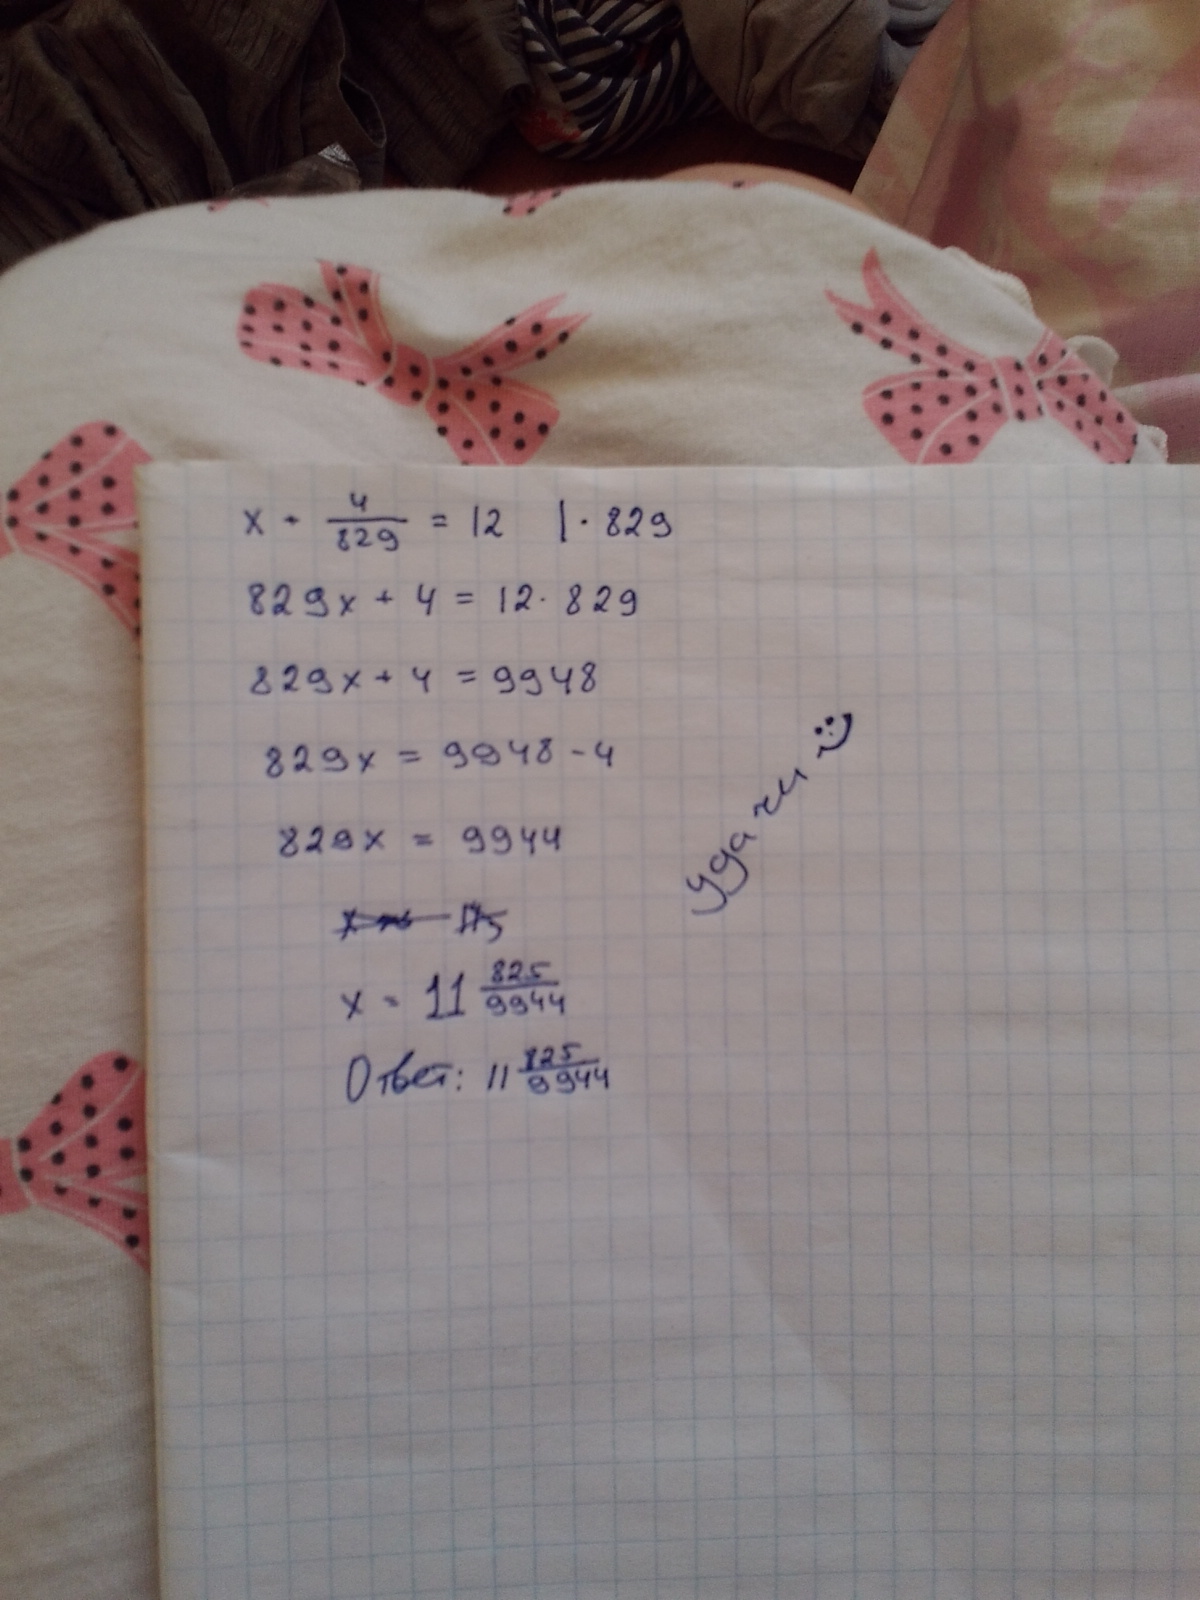 x + 4/829 = 12 | · 829
829x + 4 = 12 · 829
829x + 4 = 9948
829x = 9948 - 4
829x = 9944
x = 11 825/9944
Ответ: 11 825/9944
удачи :)